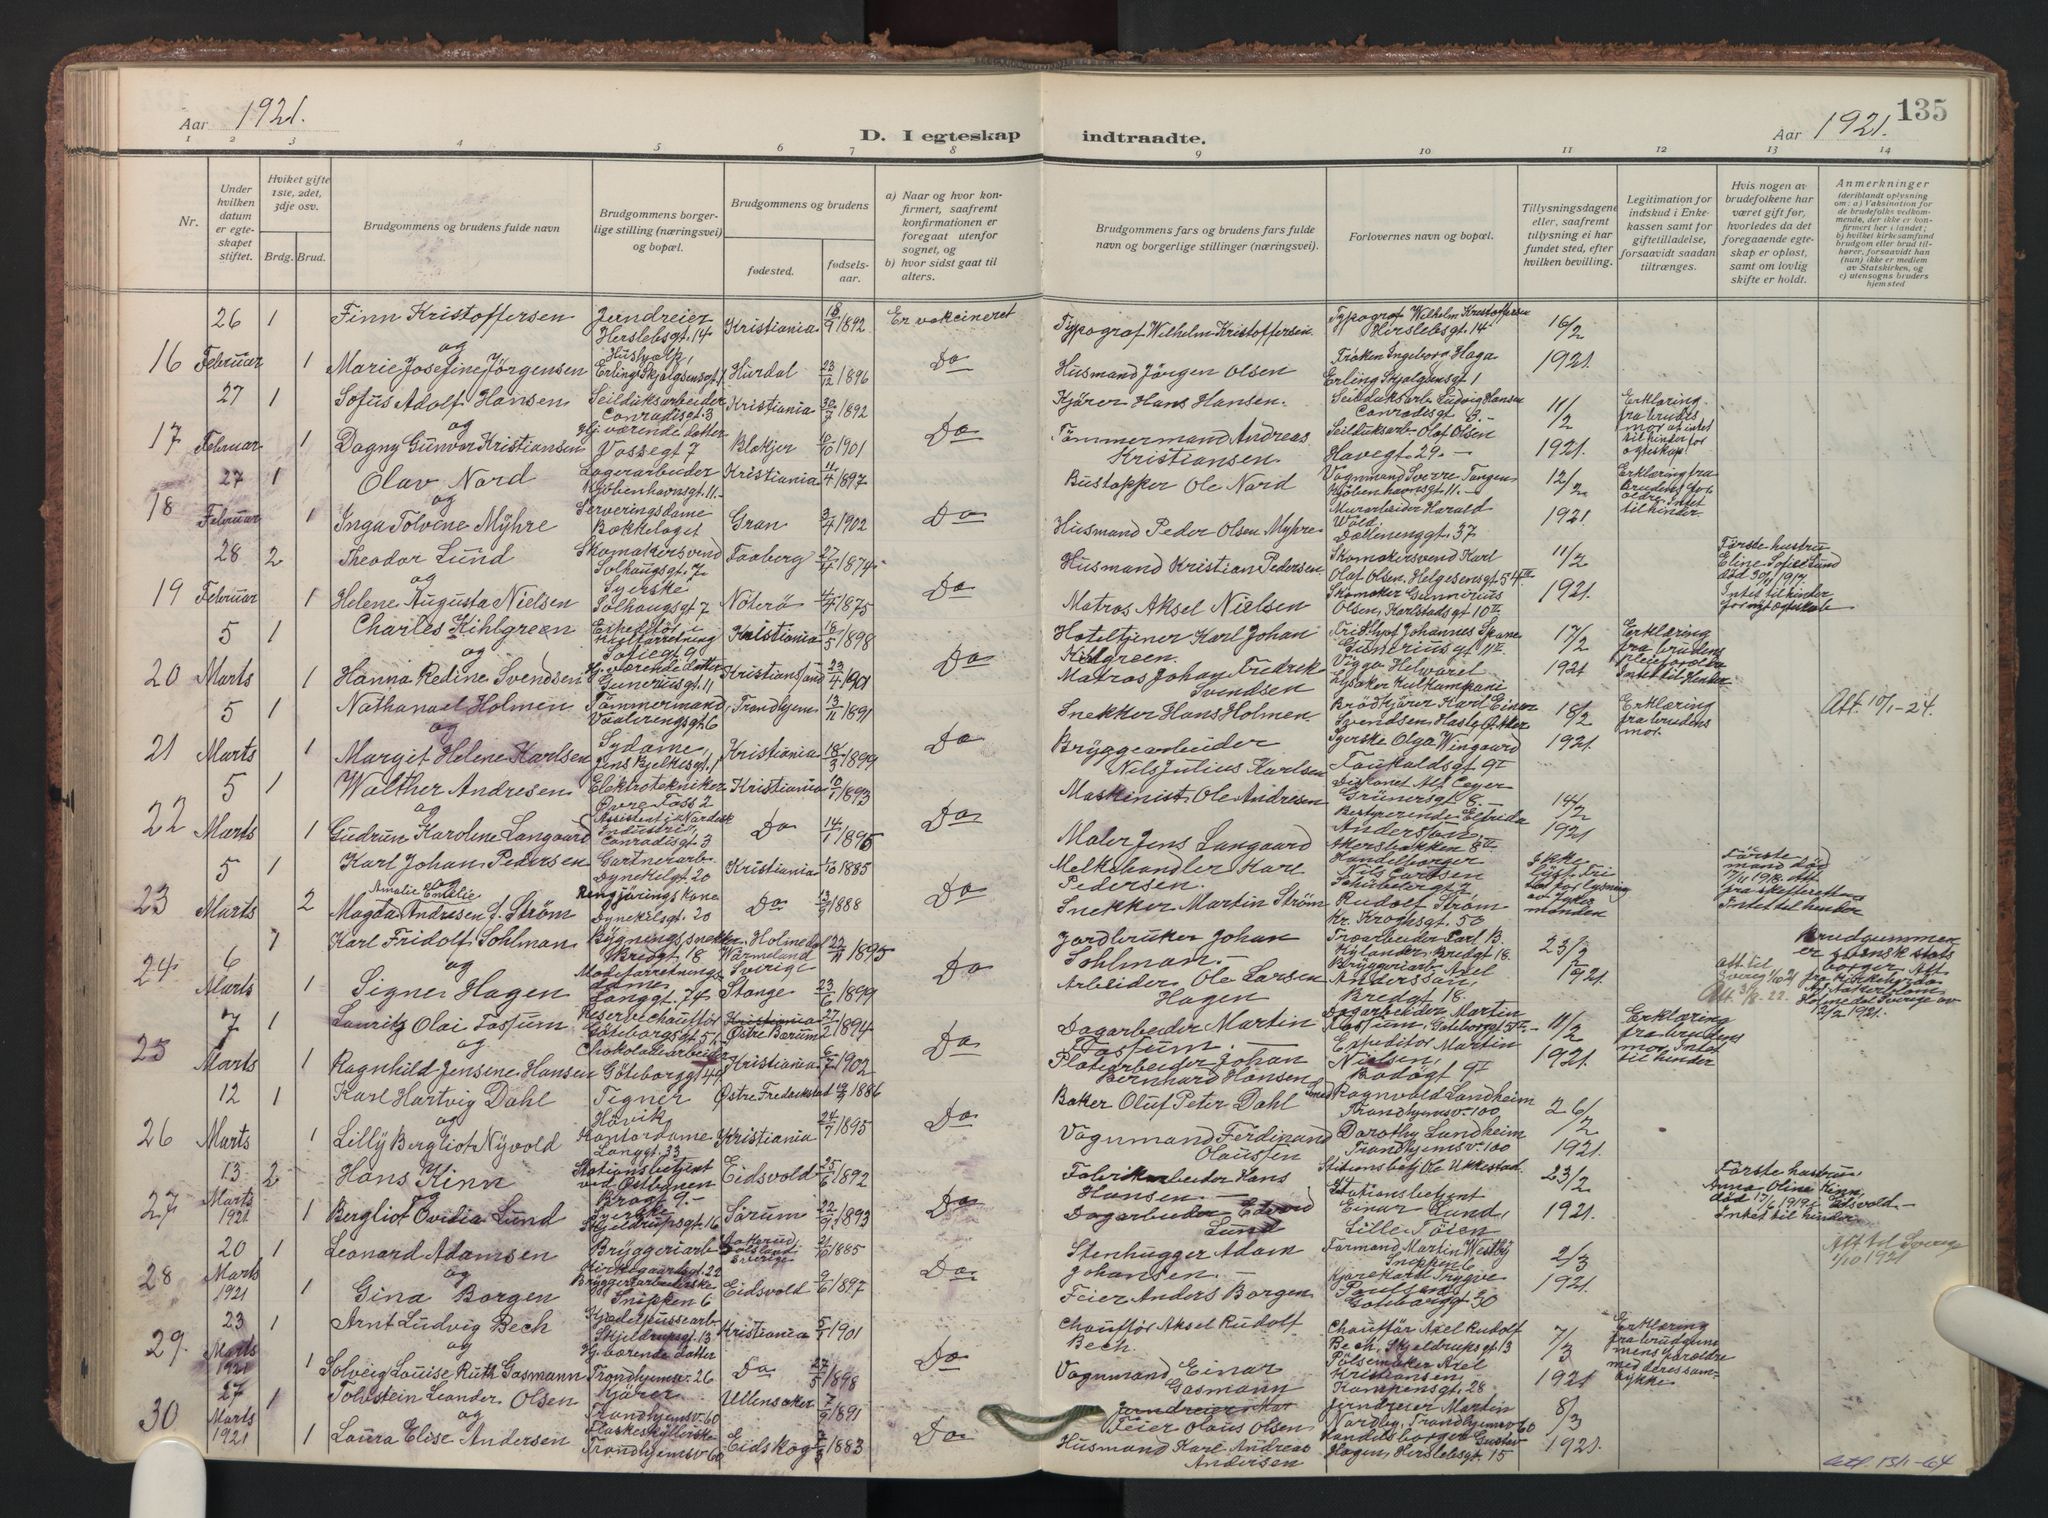 Aar 1921.
D. I egteskap indtraadte.
Aar 1921.
135
1 2 3 4 5 6 7 8 9 10 11 12 13 14
Nr.
Under hvilken datum er egteskapet stiftet.
Hviket gifte 1ste, 2det, 3dje osv.
Brdg. Brud.
Brudgommens og brudens fulde navn
Brudgommens borgerlige stilling (næringsvei) og bopæl.
Brudgommens og brudens
fødested.
fødselsaar.
a) Naar og hvor konfirmert, saafremt konfirmationen er foregaat utenfor sognet, og
b) hvor sidst gaat til alters.
Brudgommens fars og brudens fars fulde navn og borgerlige stillinger (næringsvei).
Forlovernes navn og bopæl.
Tillysningsdagene eller, saafremt tillysning ei har fundet sted, efter hvilken bevilling.
Legitimation for indskud i Enkekassen samt for giftetilladelse, forsaavidt saadan tiltrænges.
Hvis nogen av brudefolkene har været gift før, hvorledes da det foregaaende egteskap er opløst, samt om lovlig skifte er holdt.
Anmerkninger (deriblandt oplysning om: a) Vaksination for de brudefolks vedkommende, der ikke er konfirmert her i landet; b) hvilket kirkesamfund brudgom eller brud tilhører, forsaavidt han (hun) ikke er medlem av Statskirken, og c) utensogns bruders hjemsted
16 26 Februar 1 Finn Kristoffersen Jerndreier Herslebsgt. 14 Kristiania 18/9 1892 Er vakcineret Typograf Wilhelm Kristoffersen Typograf Wilhelm Kristoffersen Hirslebsgt. 14 16/2 1921.
og
1 Marie Josefine Jörgensen Hushjelp, Erling Skjalgsensgt. 1 Hurdal 23/12 1896 Do Husmand Jörgen Olsen Frøken Ingeborg Haga Erling Skjalgsensgt 1
17 27 Februar 1 Sofus Adolf Hansen Seilduksarbeider Conradisgt. 3 Kristiania 30/7 1892 Do Kjörer Hans Hansen. Seilduksarb. Ludvig Hansen Conradisgt 3. 11/2 1921. Erklæring fra brudes mor at intet til hinder for egteskap.
og
1 Dagny Gunvor Kristiansen Hj. værende datter Vossegt 7 Blakjer 6/10 1901 Tömmermand Andreas Kristiansen Seilduksarb. Olaf Olsen Havegt. 29.
18 27 Februar 1 Olav Nord Lagerarbeider Kjöbenhavnsgt. 11. Kristiania 4/4 1897 Do Bustapper Ole Nord Vognmand Sverre Tangen Kjöbenhavnsgt 11. 12/2 1921. Erklæring fra Brudens forældre. Intet til hinder.
og
1 Inga Tolvine Myhre Serveringsdame Bækkelaget Gran 3/4 1902 Husmand Peder Olsen Myhre Murarbeider Harald Wold, Dælenenggt 37
19 28 Februar 2 Theodor Lund Skomakersvend Solhaugsgt. 7 Faaberg 27/4 1874 Do Husmand Kristian Pedersen Skomakersvend Karl Olaf Olsen, Helgesensgt 54 11/2 1921. Første hustru Eline Sofie Lund död 30/1 1917. Intet til hinder for nyt egteskab
og
1 Helene Augusta Nielsen Syerske Solhaugsgt 7 Nöterö 4/4 1875 Matros Aksel Nielsen Skomaker Gunnerius Olsen, Karlstadsgt 10
20 5 Marts 1 Charles Kihlgreen Sofiegt 9 Kristiania 18/5 1898 Do Hoteltjener Karl Johan Kihlgreen. Johannes Spane 17/2 1921 Erklæring fra brudens pleieforeldre Intet til Hinder
og
1 Hanna Redine Svendsen Hj. værende datter Gunerius gt. 11 Kristiansund 23/4 1901 Matros Johan Fredrek Svendsen Vigga Helwarel Lysaker Kulkompani
21 5 Marts 1 Nathanael Holmen Tömmermand Vaalerenggt. 6 Trondhjem 13/11 1891 Do Snekker Hans Holmen Brödkjörer Karl Einar Svendsen, Hasle, Aker 18/2 1921. Erklæring fra brudens mor. Att. 10/1-24.
og
1 Margit Helene Karlsen Sydame, Jens Bjelkesgt. 1 Kristiania 18/3 1899 Bryggearbeider Nils Julius Karlsen Syerske Olga Wingaard
22 5 Marts 1 Walther Andresen Elektrotekniker Övre Foss 2 Kristiania 10/1 1893 Do Maskinist Ole Andresen Grünersgt 8. 14/2 1921
og
1 Gudrun Karoline Langaard Assistent i Nordisk Industri, Conradisgt. 3 Do 14/1 1895 Maler Jens Langaard Bestyrerende Elfrida Andersson, Akersbakken 8
23 5 Marts 1 Karl Johan Pedersen Gartnerarb. Dynekilgt 20 Kristiania 1/10 1885 Do Melkehandler Karl Pedersen. Handelborger Nils Carlsen Schübelergt 2 Ikke lyst. Første mand död 17/11 1918. Att fra skifteretten Intet til hinder
og
Amalie Emelie
2 Magda Andresen f. Ström Rengjöringskone Dynekilsgt. 20 Do 13/9 1888 Snekker Martin Ström Rudolf Ström Kr. Kroghsgt. 50
24 6 Marts 1 Karl Fridolf Sohlman Bygningssnekker Bredgt 18 Holmedal Wärmeland Sverige 22/4 1895 Do Jordbruker Johan Sohlman. Træarbeider Carl B. Kylander, Bredgt 18. 23/2 1921. Att. 3/8-22. Brudgummen er svensk statsborger. Att fra Kirkeherde Holmedal Sverige av 12/2 1921.
og
1 Signe Hagen Modeforretningsdame Langgt. 74 Stange 23/6 1899 Arbeider Ole Larsen Hagen Bryggeriarb. Axel Anderssen, Bredgt 18.
25 7 Marts 1 Lauritz Olai Fossum Reservechauffør Göteborgsgt 51 Kristiania Östre Bærum 27/2 1894 Do Dagarbeider Martin Fossum. Dagarbeider Martin Fossum, Göteborgt 51 11/2 1921. Erklæring fra brudens mor. Intet til hinder
og
1 Ragnhild Jensine Hansen Chokoladearbeider Göteborggt 49 Kristiania 6/7 1902 Platearbeider Johan Bernhard Hansen Expeditor Martin Nielsen, Bodögt 9
26 12 Marts 1 Karl Hartvig Dahl Tegner Hövik Östre Fredrikstad 1886 Do Baker Oluf Peter Dahl Ragnvald Landheim Trondhjemsv. 100 26/2 1921.
og
1 Lilly Bergliot Nyvold Kontordame Langgt. 33 Kristiania 24/7 1895 Vognmand Ferdinand Olaussen Dorothy Landheim Trondhjemsv. 100
27 13 Marts 1921 2 Hans Kinn Stationsbetjent ved Östbanen Bragt 9. Eidsvold 25/6 1892 Do Fabrikarbeider Hans Hansen. Stationsbetj Ole Ukkestad. 23/2 1921. Første hustru Anna Oline Kinn, död 17/6 1919. Eidsvold Intet til hinder
og
1 Bergliot Ovidia Lund Syerske Skjeldrupsgt 16 Sörum 22/9 1893 Dagarbeider Edvard Lund Stationsbetjent Einar Lund, Lille Töien
28 20 Marts 1921 1 Leonard Adamsen Bryggeriarb. Kirkegaardsgt. 22 Sverige 21/6 1885 Do Stenhugger Adam Johansen. Formand Martin Westby Snippen 6 2/3 1921. Att til Sverige 1/10 1921
og
1 Gina Borgen Bryggeriarbeiderske Snippen 6 Eidsvold 9/6 1897 Feier Anders Borgen Kjørekarl Trygve Paulsen Götborggt 30
29. 23 Marts 1921 1 Arnt Ludvig Bech Kjedelpussearb. Skjeldrupsgt. 13 Kristiania 5/1 1901 Do Chauffør Aksel Rudolf Bech. Chauffør Axel Rudolf Bech, Skjeldrupsgt 13 7/3 1921 Erklæring fra brudgummens forældre med deres samtykke
og
1 Solveig Louise Ruth Gasmann Hj. værende datter Trondhjemsv. 26 Do 27/5 1898 Vognmand Einar Gasmann Pölsemaker Axel Kristiansen, Kampensgt. 28
30 27 Marts 1921 1 Tohstein Leander Olsen Kjörer Trondhjemsv. 60 Ullensaker 7/9 1891 Do Feier Olaus Olsen Jerndreier Martin Nordby, Trondhjemsv 60 8/3 1921.
og
1 Laura Elise Andersen Flaskeskyllerske Trondhjemsv 60 Eidskog 1883 Husmand Karl Andreas Andersen Handelsborger Gustav Hagen, Herslebsgt. 15
Att. 13/1-64